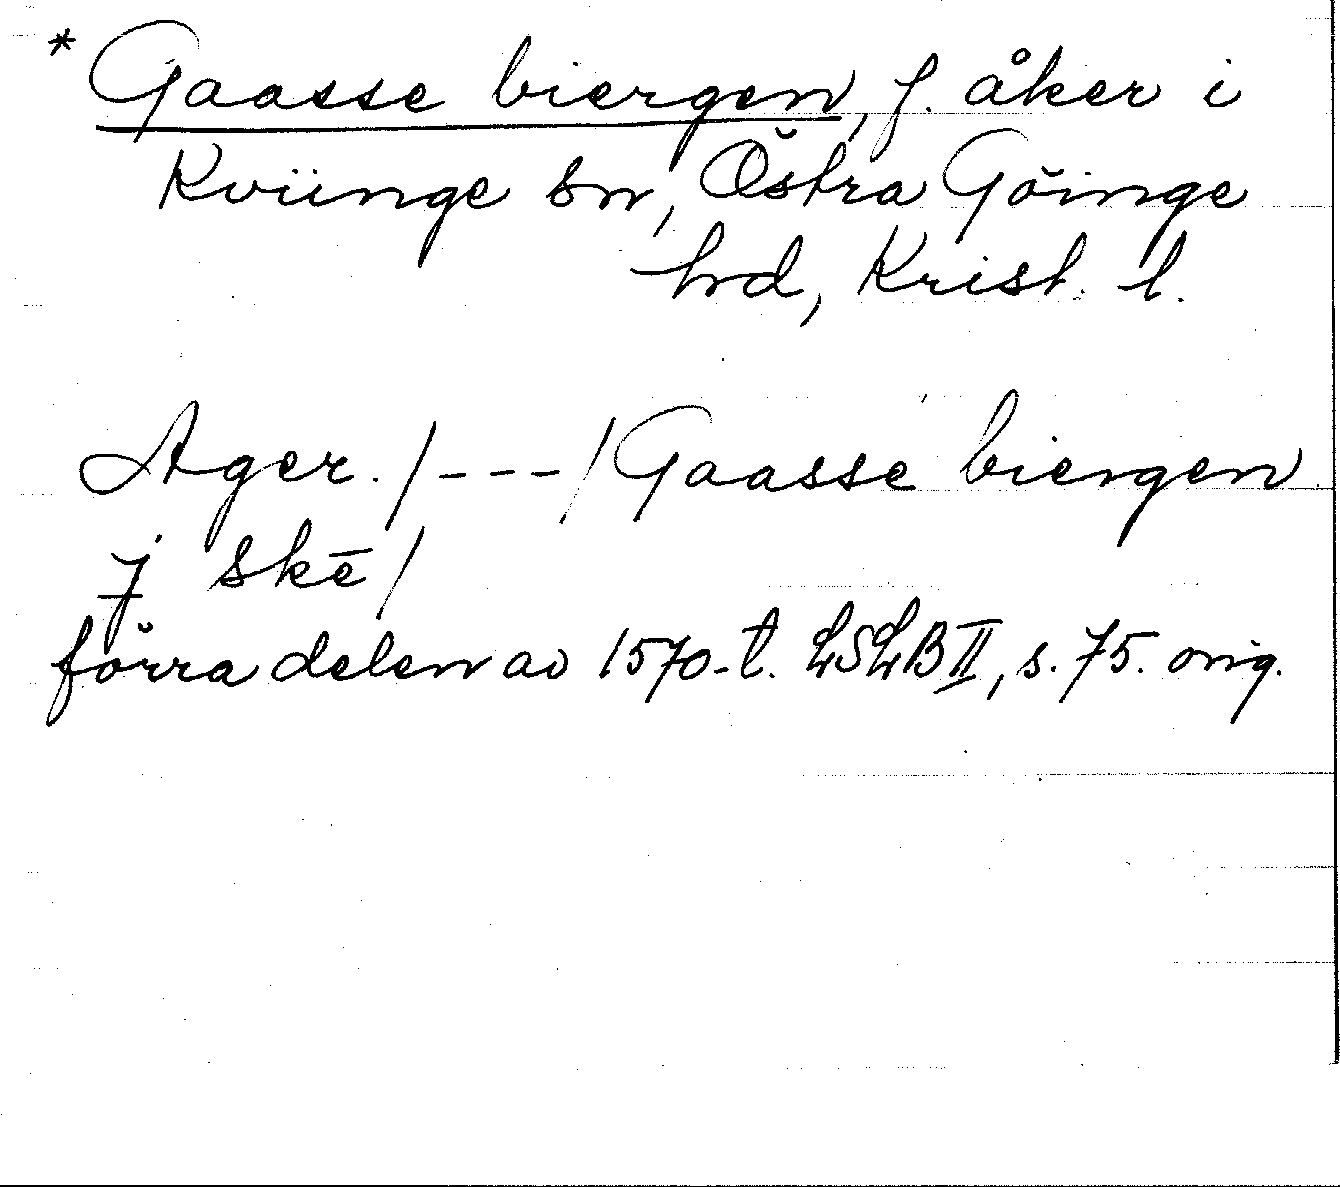 * Gaasse biergen, f. åker i
Kviinge sn, Östra Göinge
hrd, Krist. l.
Ager. /---/ Gaasse biergen
j skē/
förra delen av 1570-t. LSLB II, s. 75. orig.